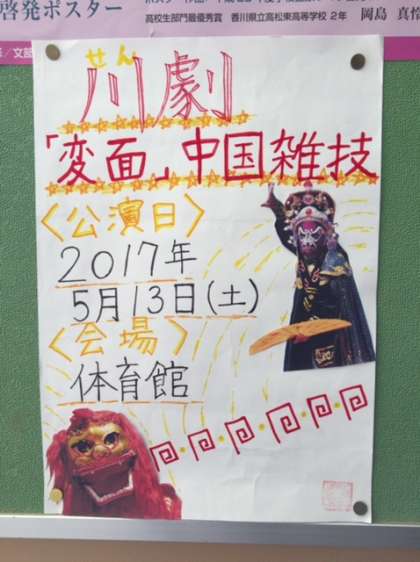 啓発ポスター
高校生部門最優秀賞 香川県立高松東高等学校 2年 岡島 真
せん
川劇
「変面」中国雑技
〈公演日〉
2017年
5月13日(土)
〈会場〉
体育館